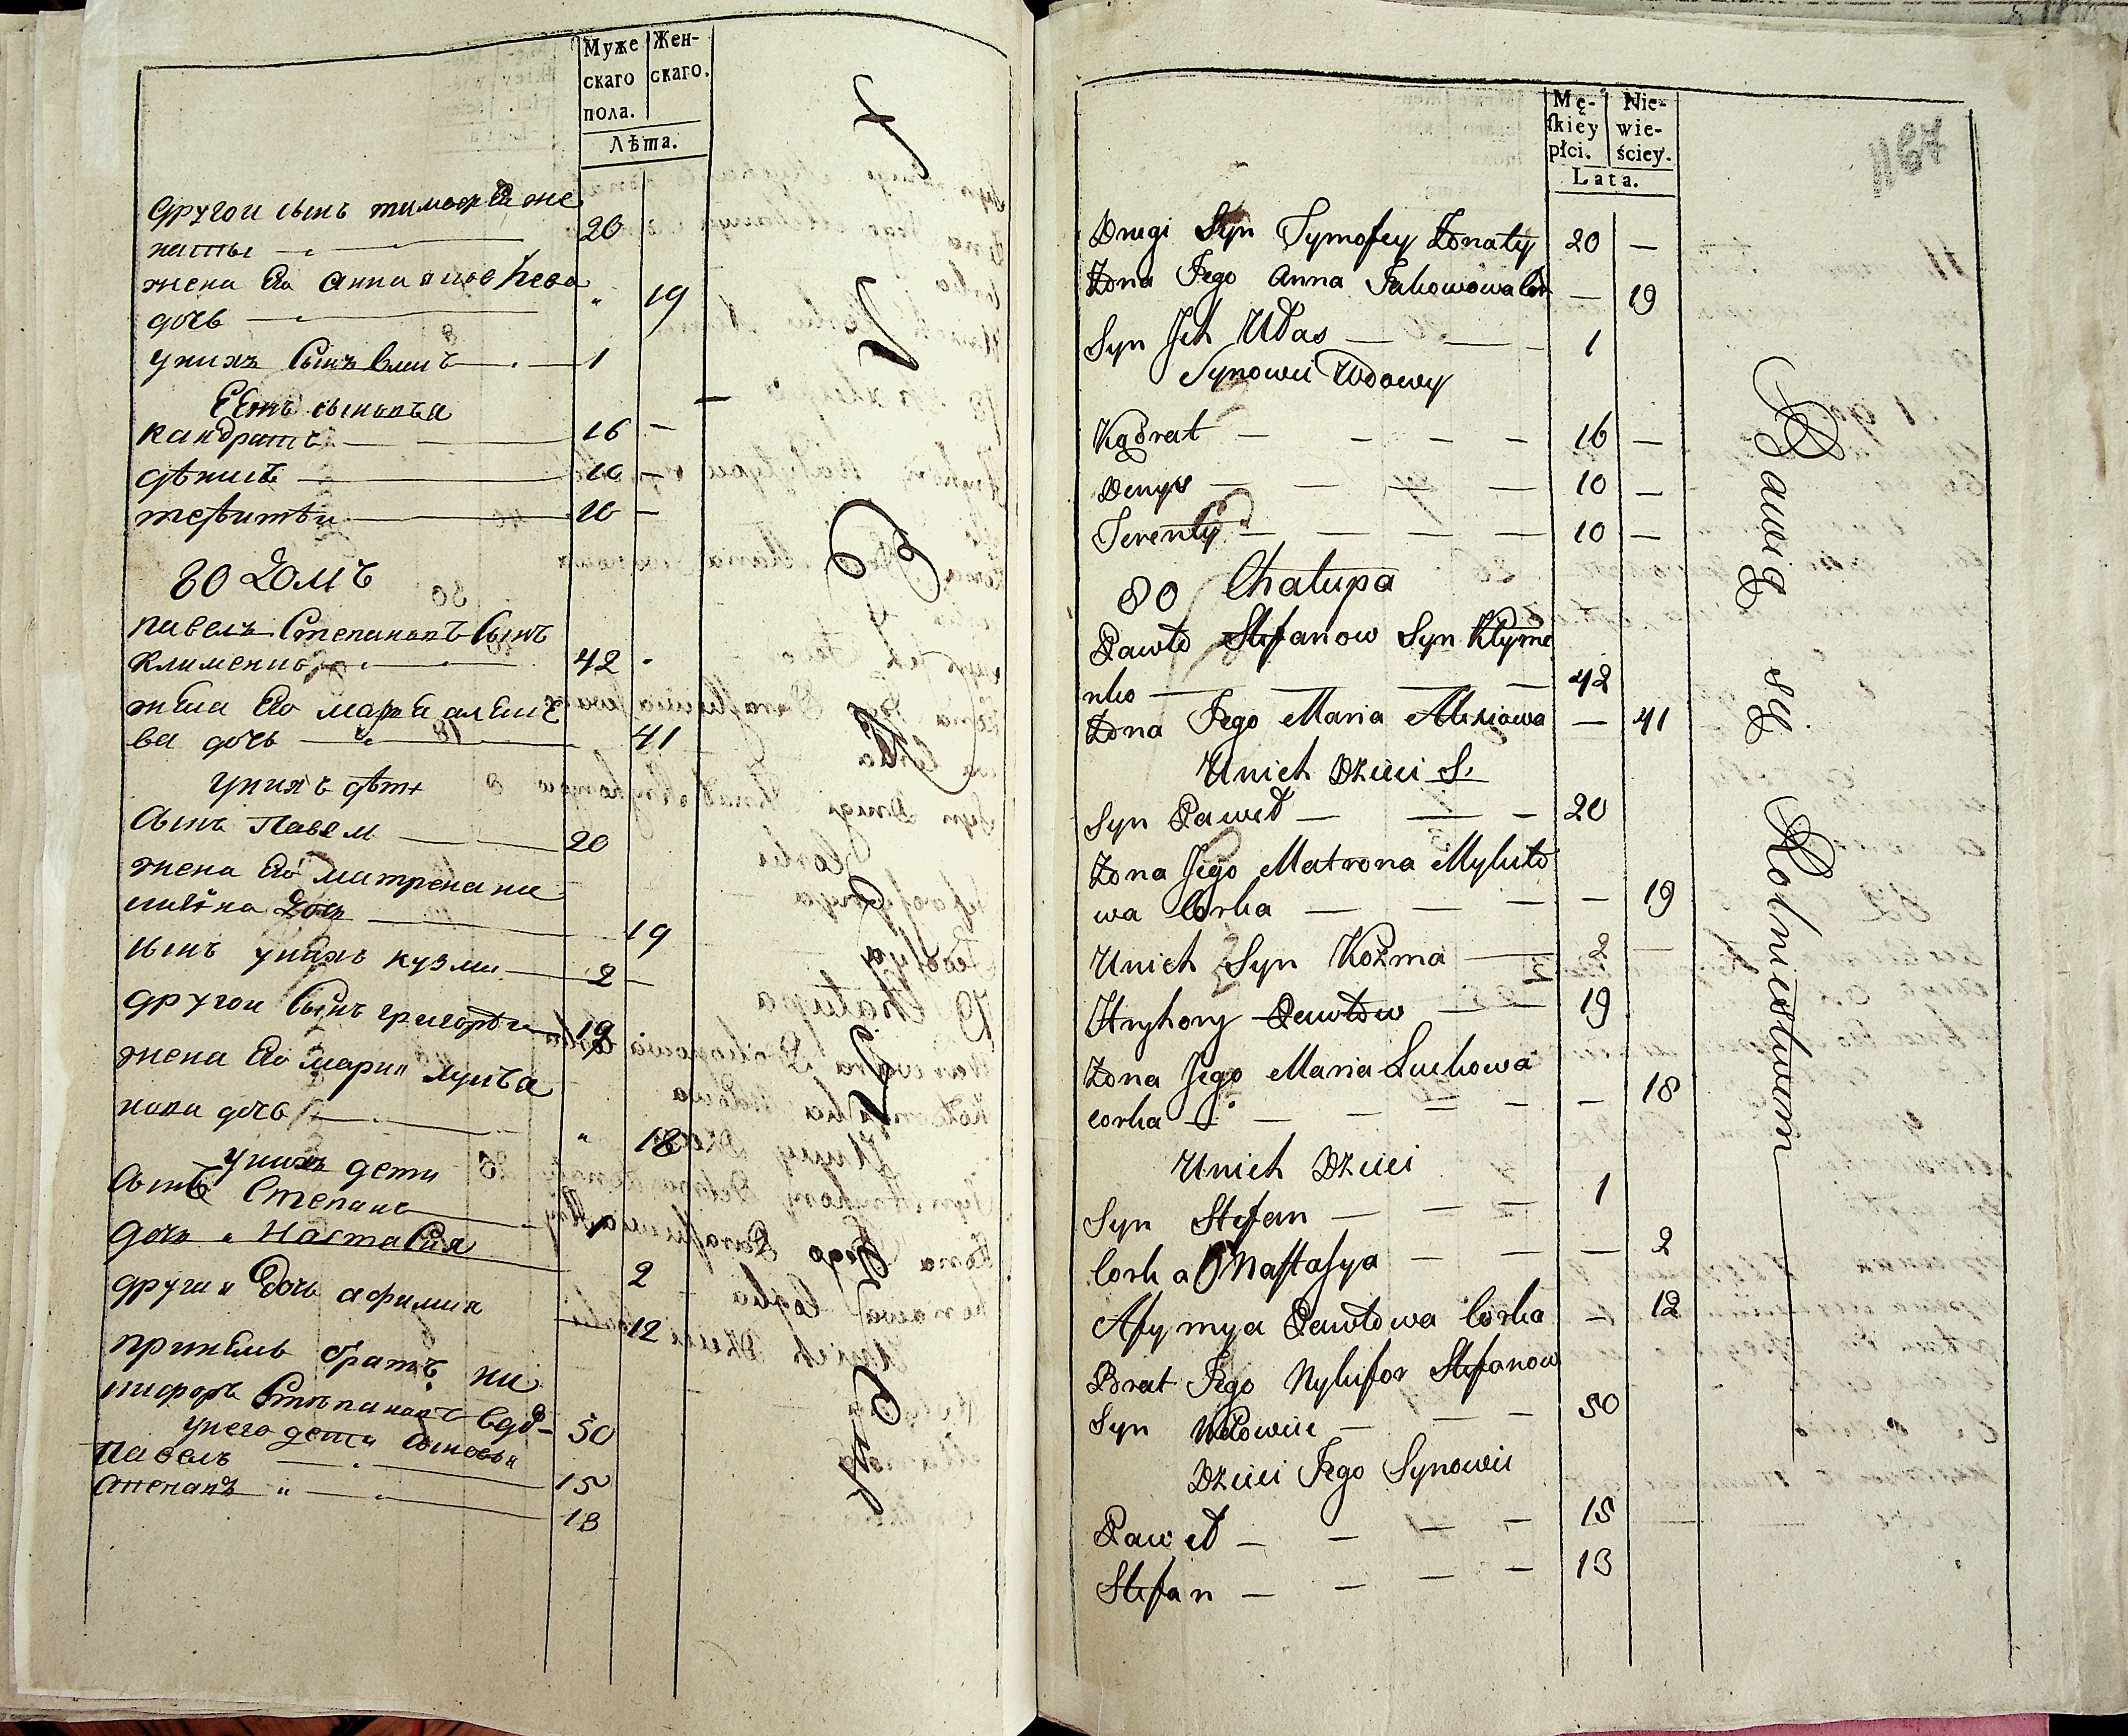 Муже
скаго
пола.
Жен-
скаго.
Лѣта.
другои сынъ тимофеи же
натыи 20
жена Его анна яковлева
дочь 19
унихъ сынъ власъ 1
кандратъ 16
дѣнисъ 10
терентѣи 10
80 домъ
павелъ Степановъ сынъ
клименко 42
жена Его марья алексѣ
ва дочь 41
унихъ дѣти
сынъ павелъ 20
жена Его матрена ми
19
сынъ унихъ кузма 2
другои сынъ григорѣи 19
жена Его мария лукъа
нова дочь 18
унихъ дети
сынъ Степанъ 1
дочь Настасия 2
другая дочь афимия 12
братъ ни
кифоръ Степановъ вдо- 50
унего дети сыновья
павелъ 15
степанъ 13
Mę-
ſkiey
płci.
Nie-
wie-
ściey.
Lata.
1187
Drugi Syn Tymofey Żonaty 20
Żona Jego Anna Jakowowa Cor 19
Syn Jch Ułas 1
Synowii Wdowy
Kądrat 16
Denys 10
Terenty 10
80 Chałupa
Pawło Stefanow Syn Klyme
nko 42
Żona Jego Maria Alexiowa 41
Unich Dzieci S.
Syn Paweł 20
Żona Jego Matrona Mykiło
wa Corka 19
Unich Syn Kozma 2
Hryhory Pawłow 19
Żona Jego Maria Łukowa
corka 18
Unich Dzieci
Syn Stefan 1
Corka Naſtaſya 2
Afymya Pawłowa Corka 12
Brat Jego Nykifor Stefanow
Syn Wdowiec 50
Dzieci Jego Synowii
Paweł 15
Stefan 13
Bawią się Rolnictwem